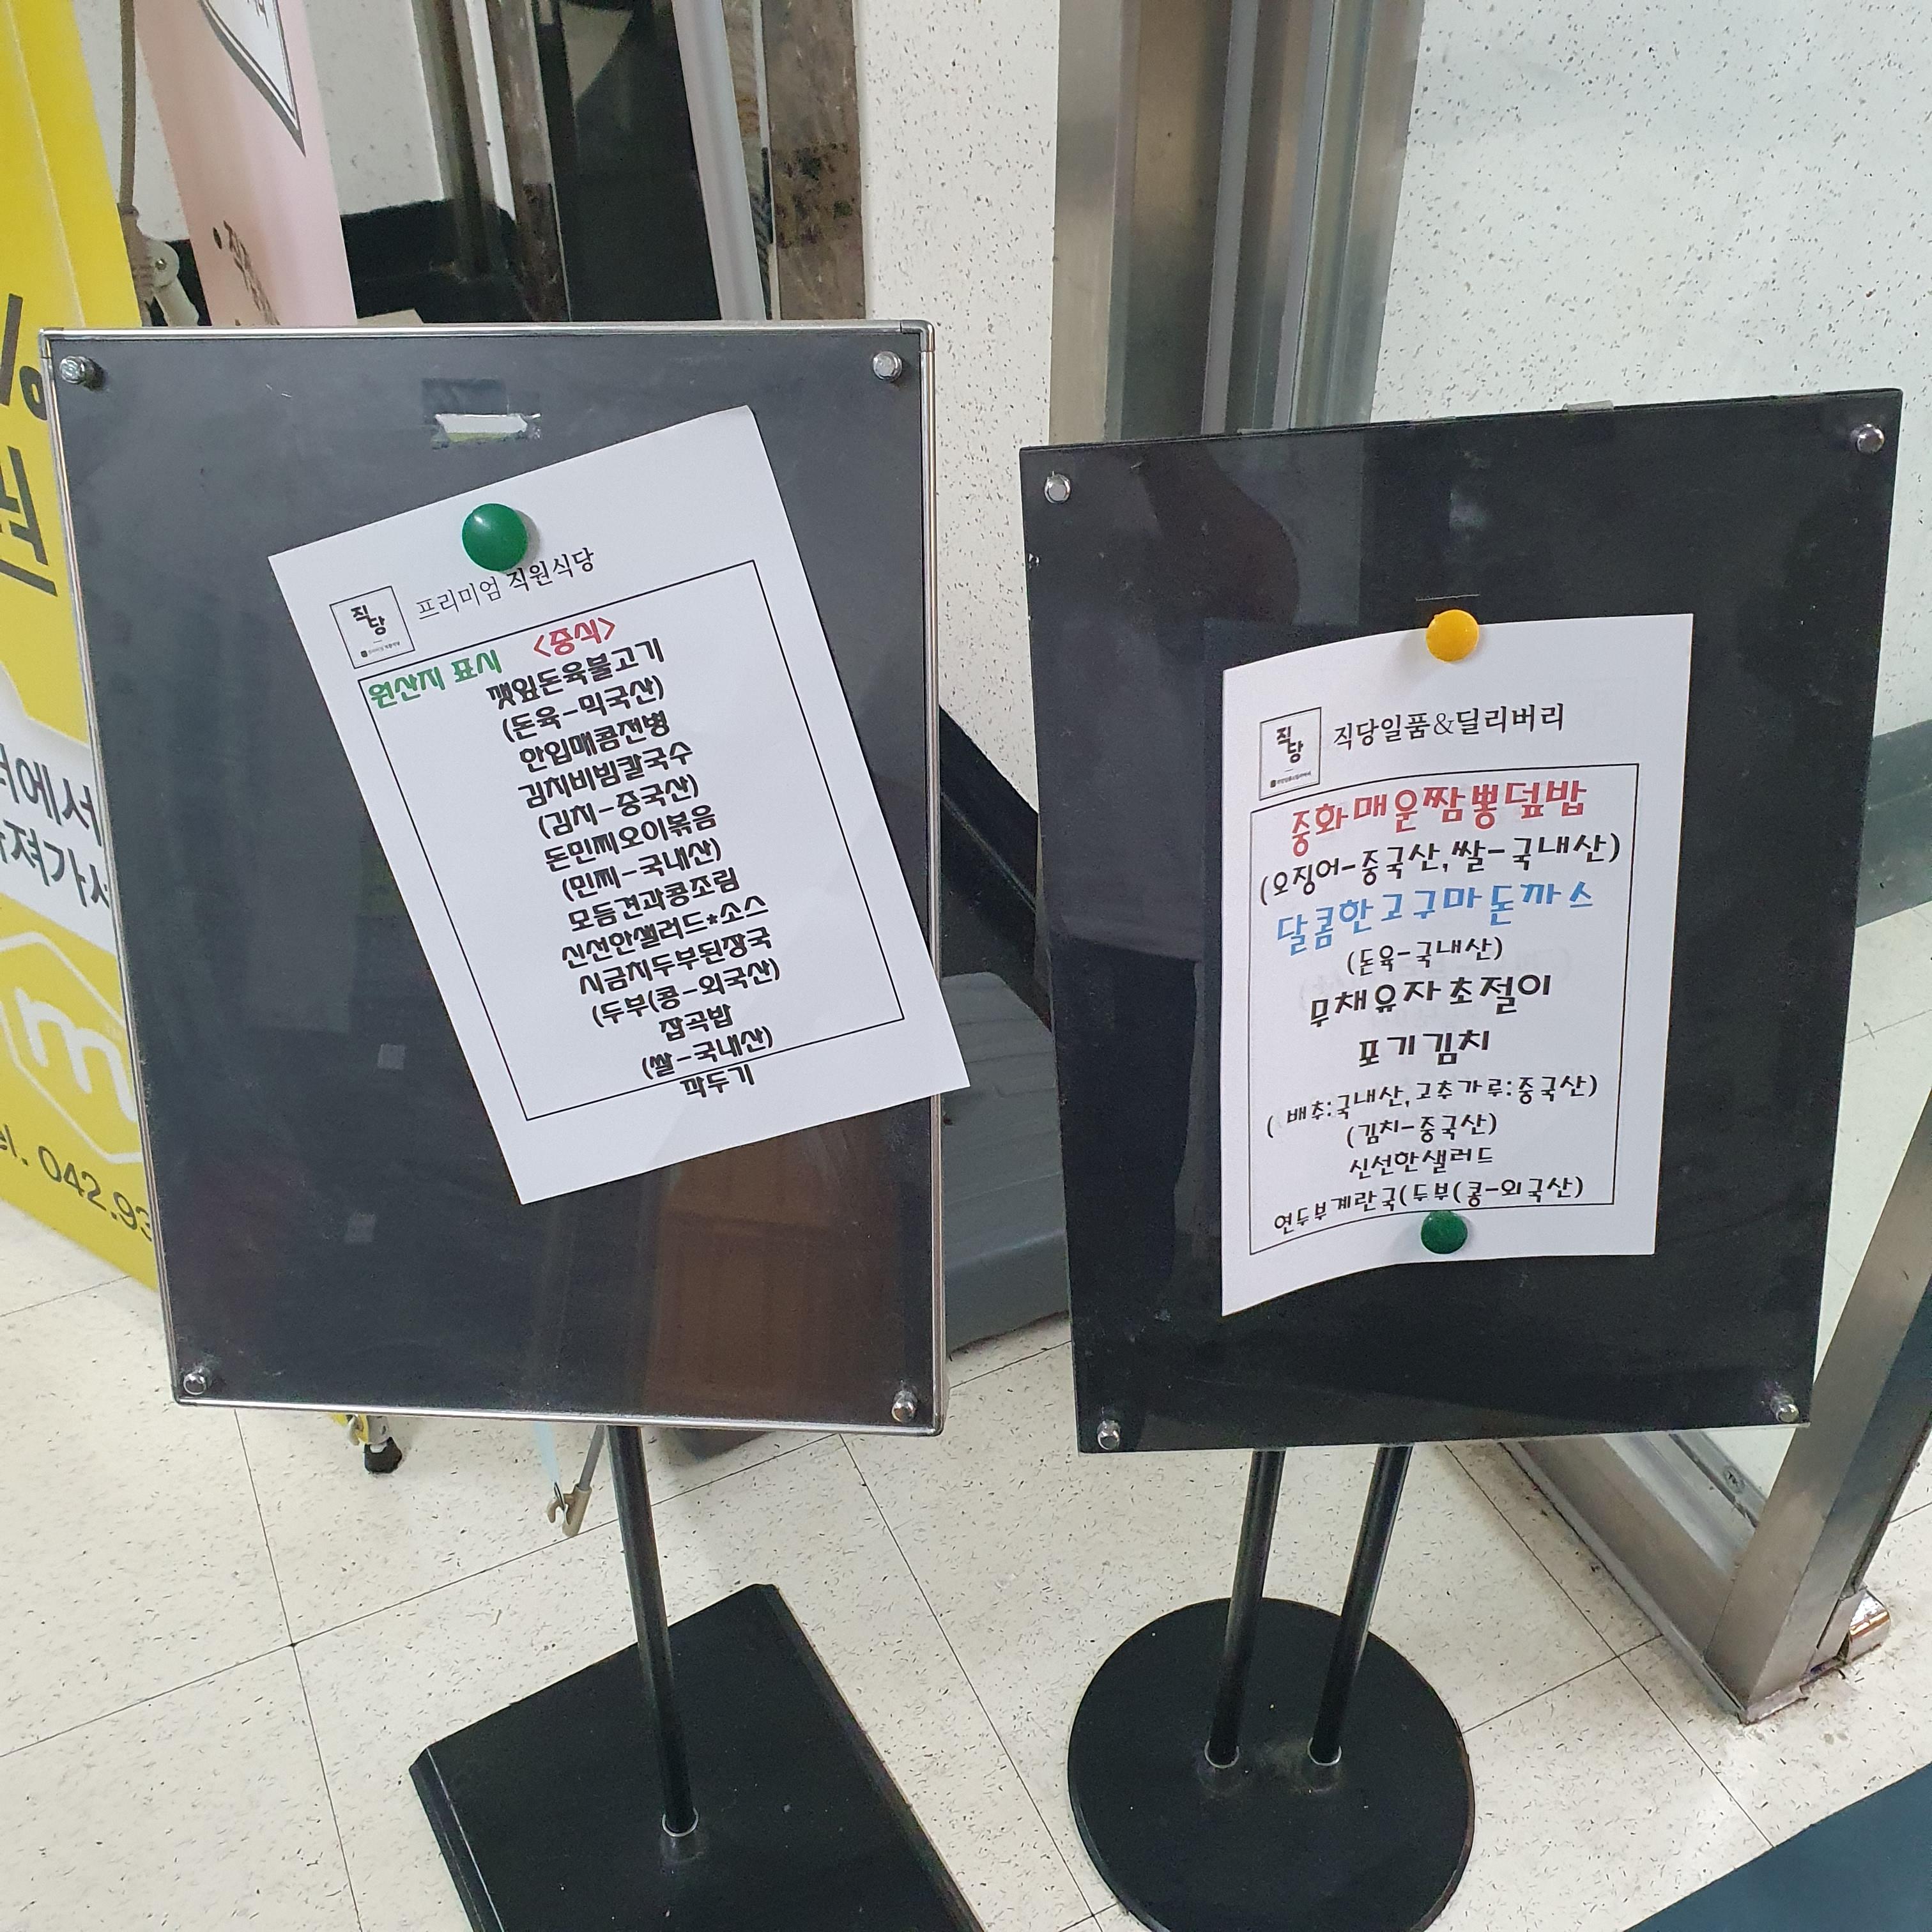 프리미엄 직원식당
직당
원산지 표시
<중식>
깻잎돈육불고기
(돈육-믹국산)
한입매콤전병
김치비빔칼국수
(김치-중국산)
돈민찌오이볶음
(민찌-국내산)
모듬견과콩조림
신선한샐러드*소스
시금치두부된장국
(두부(콩-외국산)
잡곡밥
(쌀-국내산)
깍두기
직당
직당일품&딜리버리
중화매운짬뽕덮밥
(오징어-중국산,쌀-국내산)
달콤한고구마돈까스
(돈육-국내산)
무채유자초절이
포기김치
( 배추:국내산,고추가루:중국산)
(김치-중국산)
신선한샐러드
연두부계란국(두부(콩-외국산)
%
에서
져가
m
el. 042.93